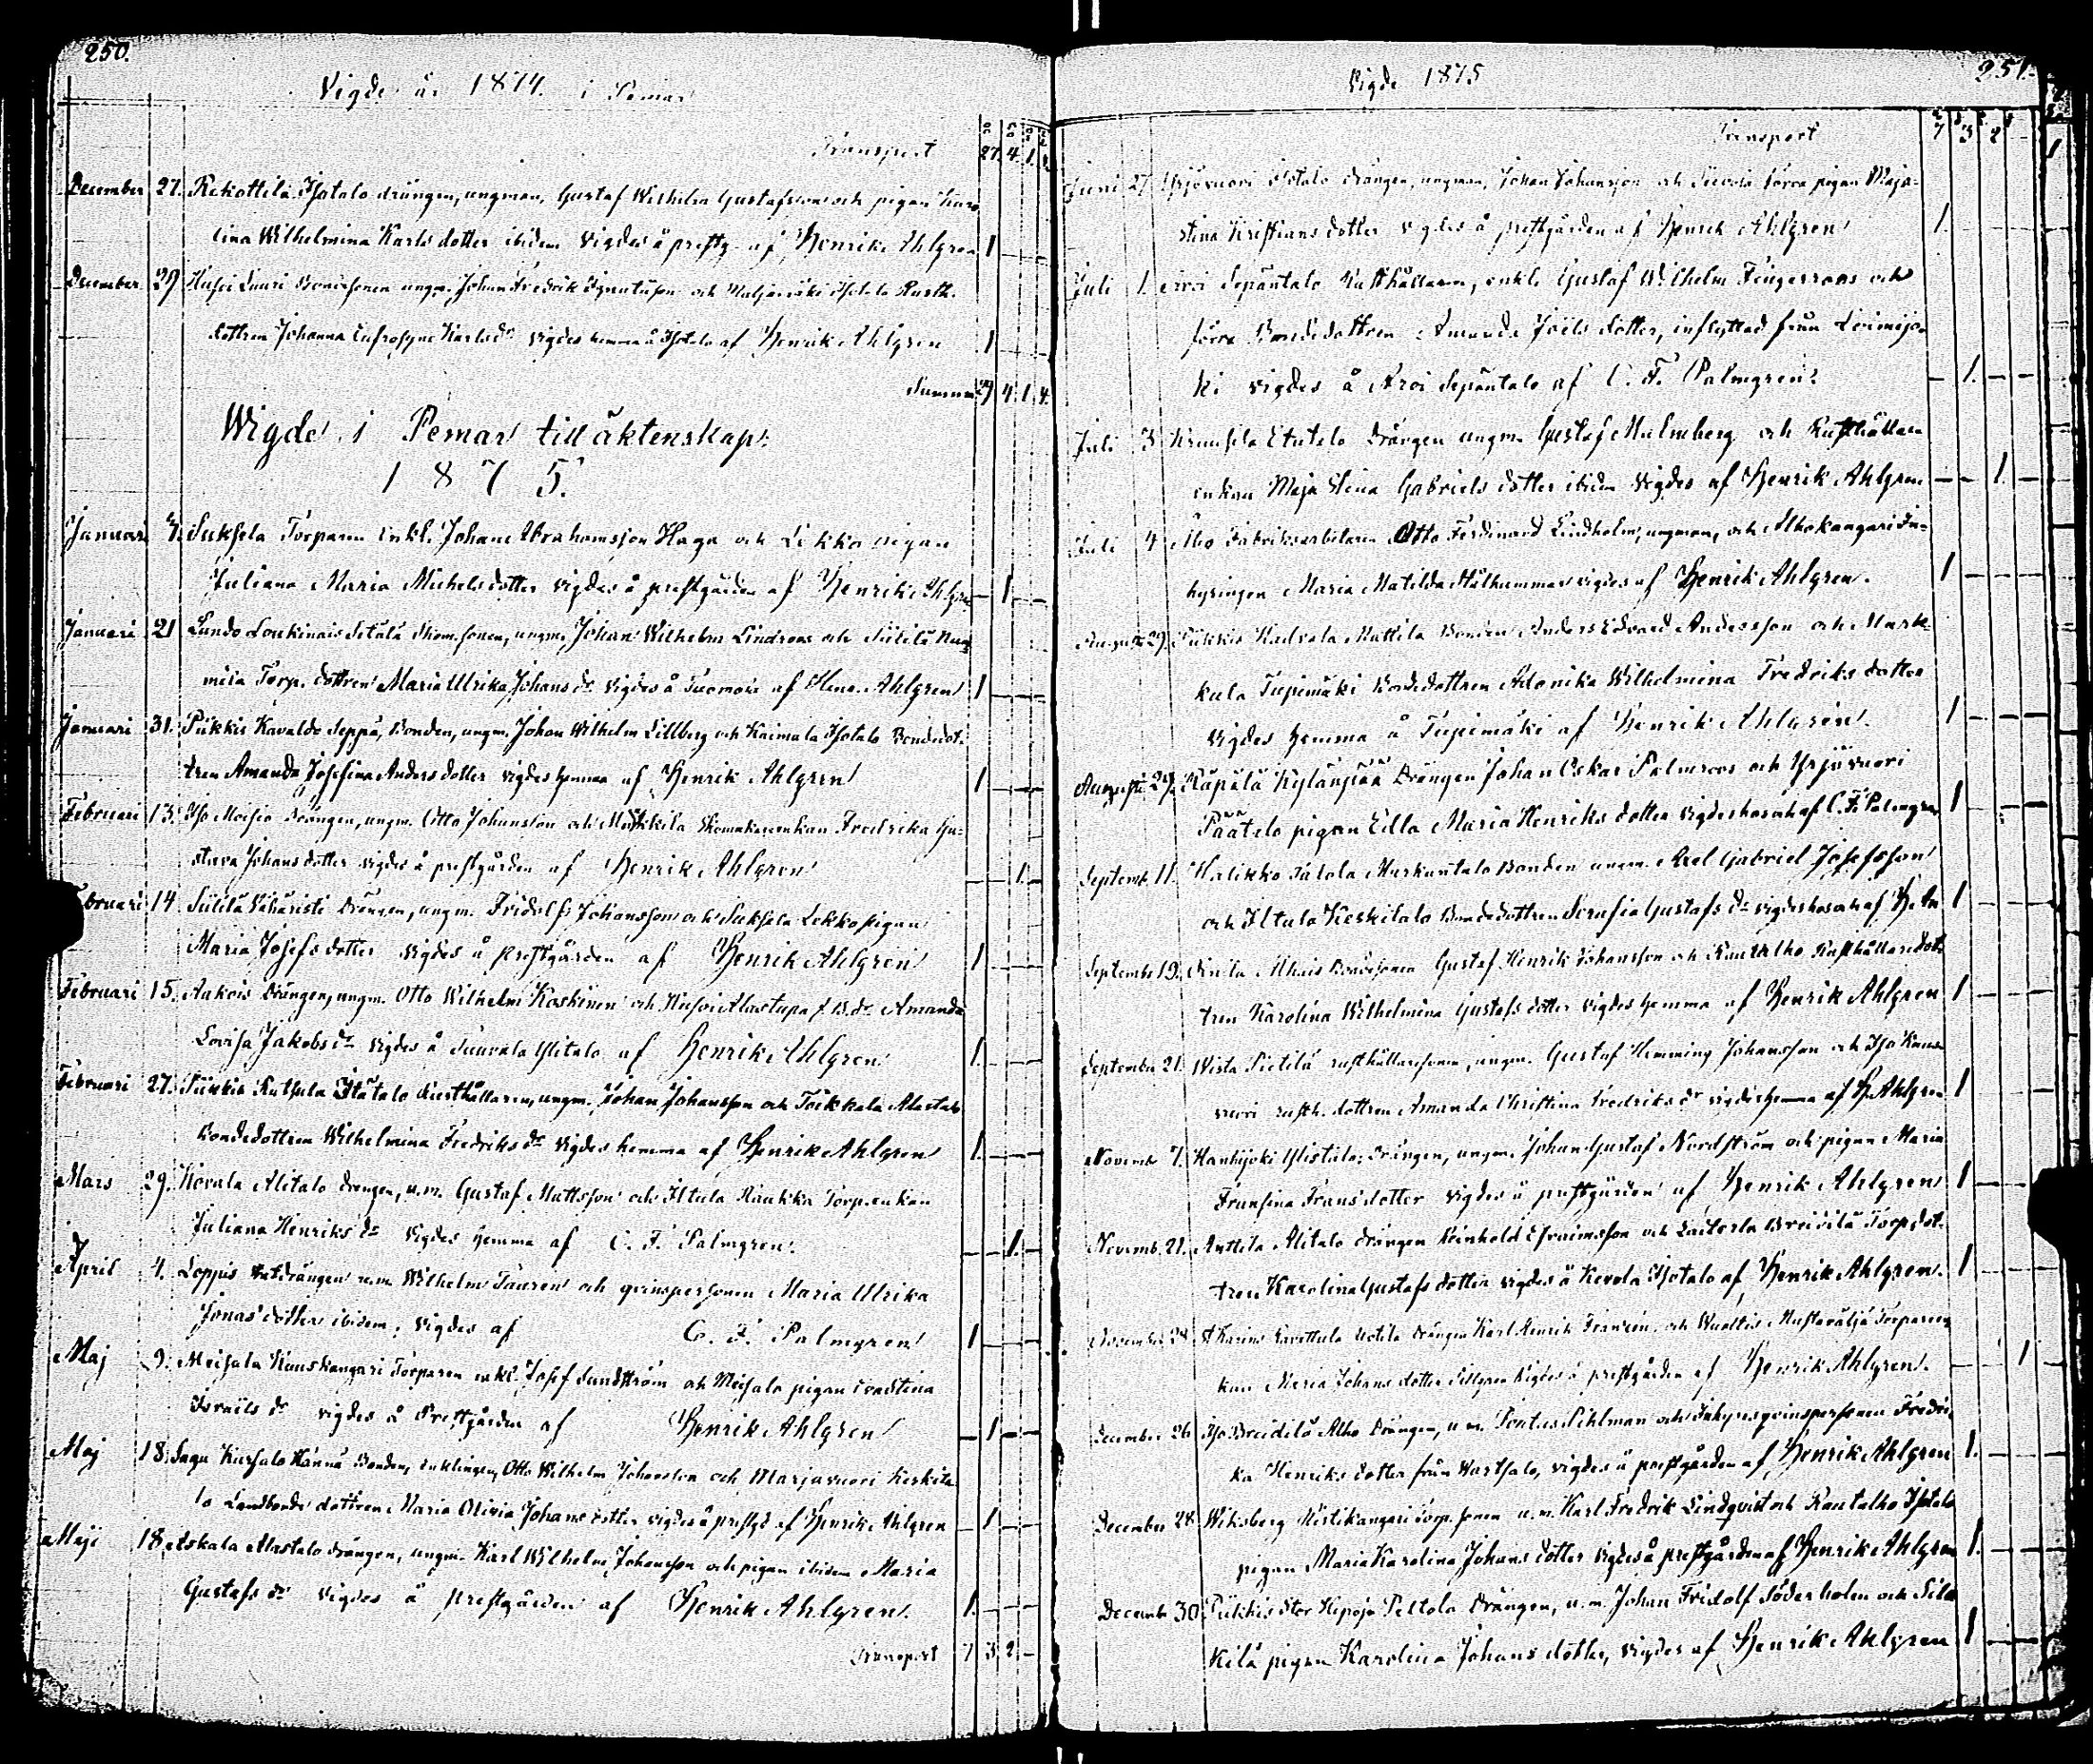 250.
Vigde år 1874. i Pemar
Transport 27. 4. 1.
December 27. Rekottila Isotalo drängen, ungman, Gustaf Wilhelm Gustafsson och pigan Karo
lina Wilhelmina Karls dotter ibidem vigdes å prestg. af Henrik Ahlgren 1
December 29 Bondesonen ungm. Johan Fredrik och Isotalo Rusth.
dottren Johanna Eufrosyne Karls dr vigdes hemma å Isotalo af Henrik Ahlgren 1
Summa 29 4. 1. 4.
Wigde i Pemar till äktenskap:
1875.
Januari Suksela Torparen enkl. Johan Abrahamsson Haga och Lekko pigan
Juliana Maria Michels dotter vigdes å prestgården af Henrik Ahlgren 1
Januari 21 Lundo Loukinais Setälä ungm. Johan Wilhelm Lindroos och
Torp. dottren Maria Ulrika Johans dr vigdes å af Henr. Ahlgren 1
Januari 31. Piikkis Kavaldo Seppä, Bonden, ungm. Johan Wilhelm Lillberg och Kaimala Isotalo Bondedot-
tren Amanda Josefina Anders dotter vigdes hemma af Henrik Ahlgren 1
Februari 13. Iso Moisio Drängen, ungm. Otto Johansson och Skomakareenkan Fredrika Gu-
stava Johans dotter vigdes å prestgården af Henrik Ahlgren 1.
Februari 14 Drängen, ungm. Fridolf Johansson och Suksela Lekko pigan
Maria Josefs dotter vigdes å prestgården af Henrik Ahlgren 1
Februari 15. Aakois Drängen, ungm. Otto Wilhelm Koskinen och Alastupa f. B. dr Amanda
Lovisa Jakobs dr vigdes å Ylitalo af Henrik Ahlgren 1.
Februari 27. Itätalo Rusthållaren, ungm. Johan Johansson och Toikkala Alastalo
Bondedottren Wilhelmina Fredriks dr vigdes hemma af Henrik Ahlgren 1.
Mars 29. Kevala Alitalo drengen, u.m. Gustaf Mattsson och Iltula Raukka Torp.enkan
Juliana Henriks dr vigdes hemma af C. F. Palmgren. 1.
April 4. Loppis drängen u.m. Wilhelm Tauren och qvinspersonen Maria Ulrika
Jonas dotter ibidem, vigdes af C. F. Palmgren 1
Maj 9. Meisala Kuuskangari Torparen enkl. Josef Sundström och Meisala pigan Eva Stina
Israels dr vigdes å Prestgården af Henrik Ahlgren 1
Maj 18. Sagu Hännä Bonden, enklingen, Otto Wilhelm Johansson och Marjavuori Keskita-
lo Landbonde dottren Maria Olivia Johans dotter vigdes å prestgd af Henrik Ahlgren 1
Maji 18. Askala Alastalo drängen, ungm. Karl Wilhelm Johansson och pigan ibidem Maria
Gustafs dr vigdes å prestgården af Henrik Ahlgren 1.
Transport 7 3 2 -
Vigde 1875
251.
Transport 7 3 2
Juni 27 Yrjövuori Isotalo drängen, ungman, Johan Johansson och förra pigan Maja
Stina Kristians dotter vigdes å prestgården af Henrik Ahlgren 1.
Juli 1. Arvi Sepäntalo Rusthållaren, enkl. Gustaf Wilhelm Fingerroos och
förra Bondedottren Amanda Joels dotter, inflyttad från Loimijo-
ki vigdes å Arvi Sepäntalo af C. F. Palmgren. 1.
Juli 3 Etutalo Drängen ungm. Gustaf Malmberg och Rusthållare
enkan Maja Stina Gabriels dotter ibidem vigdes af Henrik Ahlgren 1.
Juli 4 Åbo Fabriksarbetaren Otto Ferdinand Lindholm, ungman, och Alhokangari In-
hysingen Maria Matilda vigdes af Henrik Ahlgren. 1
Augusti 29. Piikkis Hadvala Mattila Bonden Anders Edvard Andersson och Mark-
kula Tiipimäki Bondedottren Adonika Wilhelmina Fredriks dotter
vigdes hemma å Tiipimäki af Henrik Ahlgren. 1
Augusti 29. Räpälä Kylänpää Drängen Johan Oskar Palmroos och Yrjövuori
Päätalo pigan Edla Maria Henriks dotter vigdes af C. F. Palmgren 1
Septemb. 11. Halikko Bonden ungm. Axel Gabriel Josefsson
och Iltula Keskitalo Bondedottren Serafia Gustafs dr vigdes af H. An 1
September 19. Bondesonen Gustaf Henrik Johansson och Rautalho Rusthållaredot-
tren Karolina Wilhelmina Gustafs dotter vigdes hemma af Henrik Ahlgren 1
September 21. Wista Pietilä rusthållaresonen, ungm. Gustaf Hemming Johansson och Iso
vuori rusth. dottren Amanda Christina Fredriks dr vigdes hemma af H. Ahlgren 1
Novemb. 7. Hankijoki Ylistalo Drängen, ungm. Johan Gustaf Nordström och pigan Maria
Fransina Frans dotter vigdes å prestgården af Henrik Ahlgren 1
Novemb. 21. Anttila Alitalo drängen Reinhold Efraimsson och Breidilä Torpdot-
tren Karolina Gustafs dotter vigdes å Kevola Isotalo af Henrik Ahlgren. 1
November 28 St Karins drängen Karl Henrik Franzén och Torparen
kan Maria Johans dotter vigdes å prestgården af Henrik Ahlgren. 1
December 26 Breidilä Alho Drängen, u.m. Pontus Pihlman och Inhysesqvinspersonen Fredri-
ka Henriks dotter från vigdes å prestgården af Henrik Ahlgren 1.
December 28 Wiksberg Ristikangari Torp.sonen u.m. Karl Fredrik Lindqvist och Rautalho Isotalo
pigan Maria Karolina Johans dotter vigdes å prestgården af Henrik Ahlgren 1.
December 30. Piikkis Stor Hepojo Peltola Drängen, u.m. Johan Fridolf Söderholm och
kilä pigan Karolina Johans dotter, vigdes af Henrik Ahlgren 1